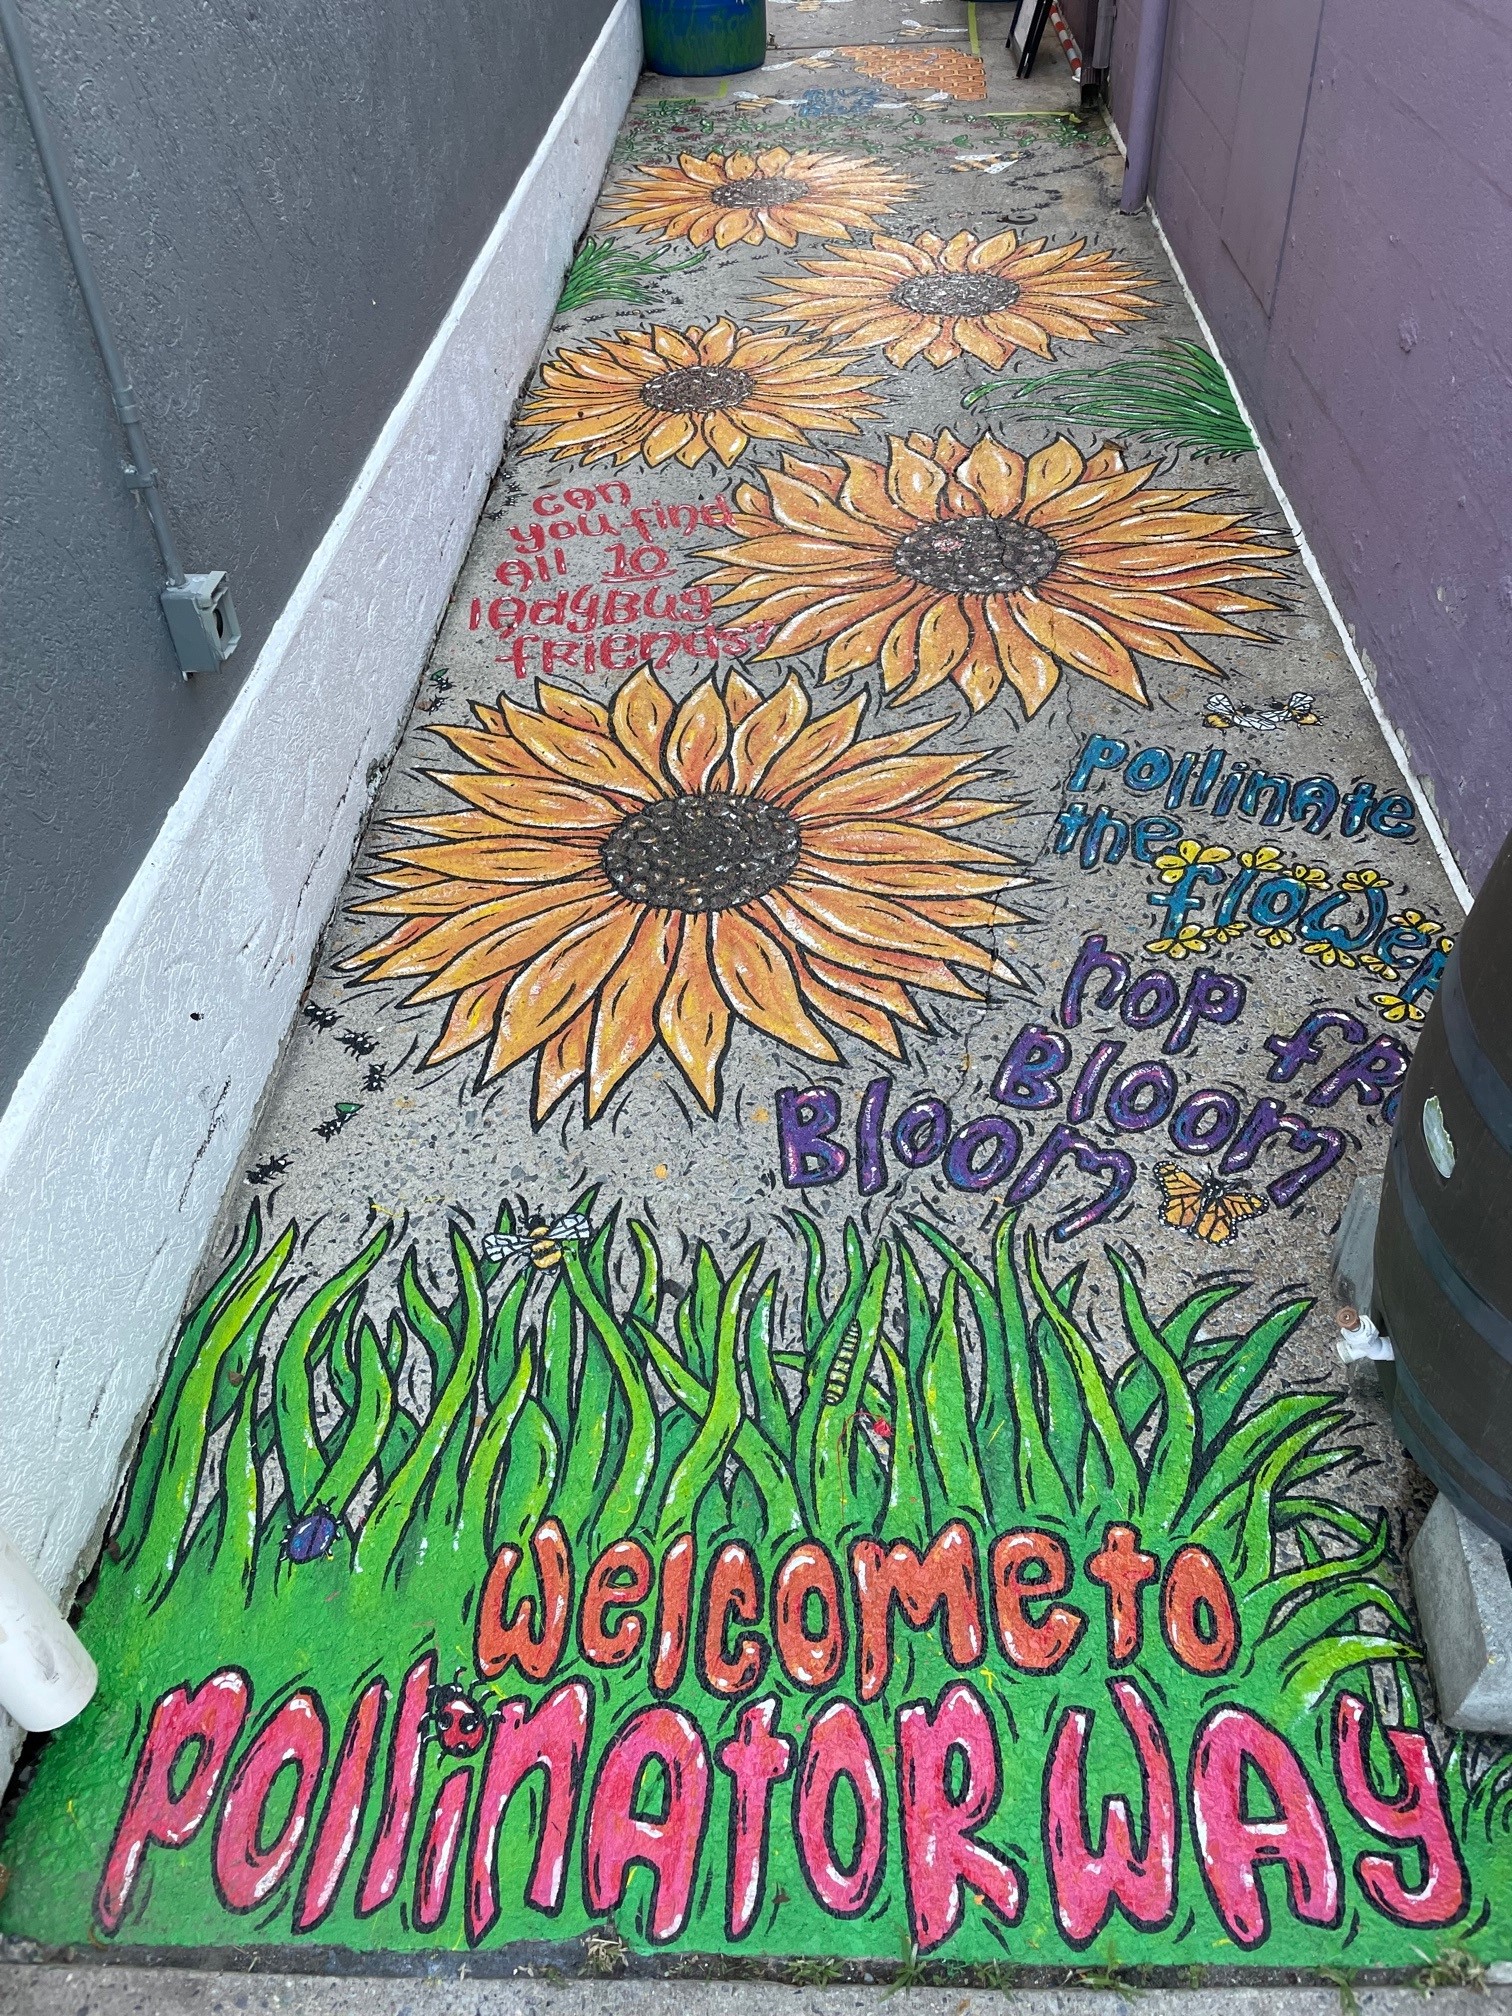 can
you find
All 10
ladyBug
friends?
pollinate
the
flower
hop fro
Bloom
Bloom
welcome to
pollinatorway